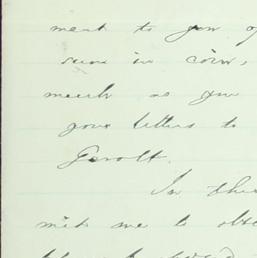 ment to you of
sum in coin,
much as you
your letters to
Gerolt.
In this
mit me to obs